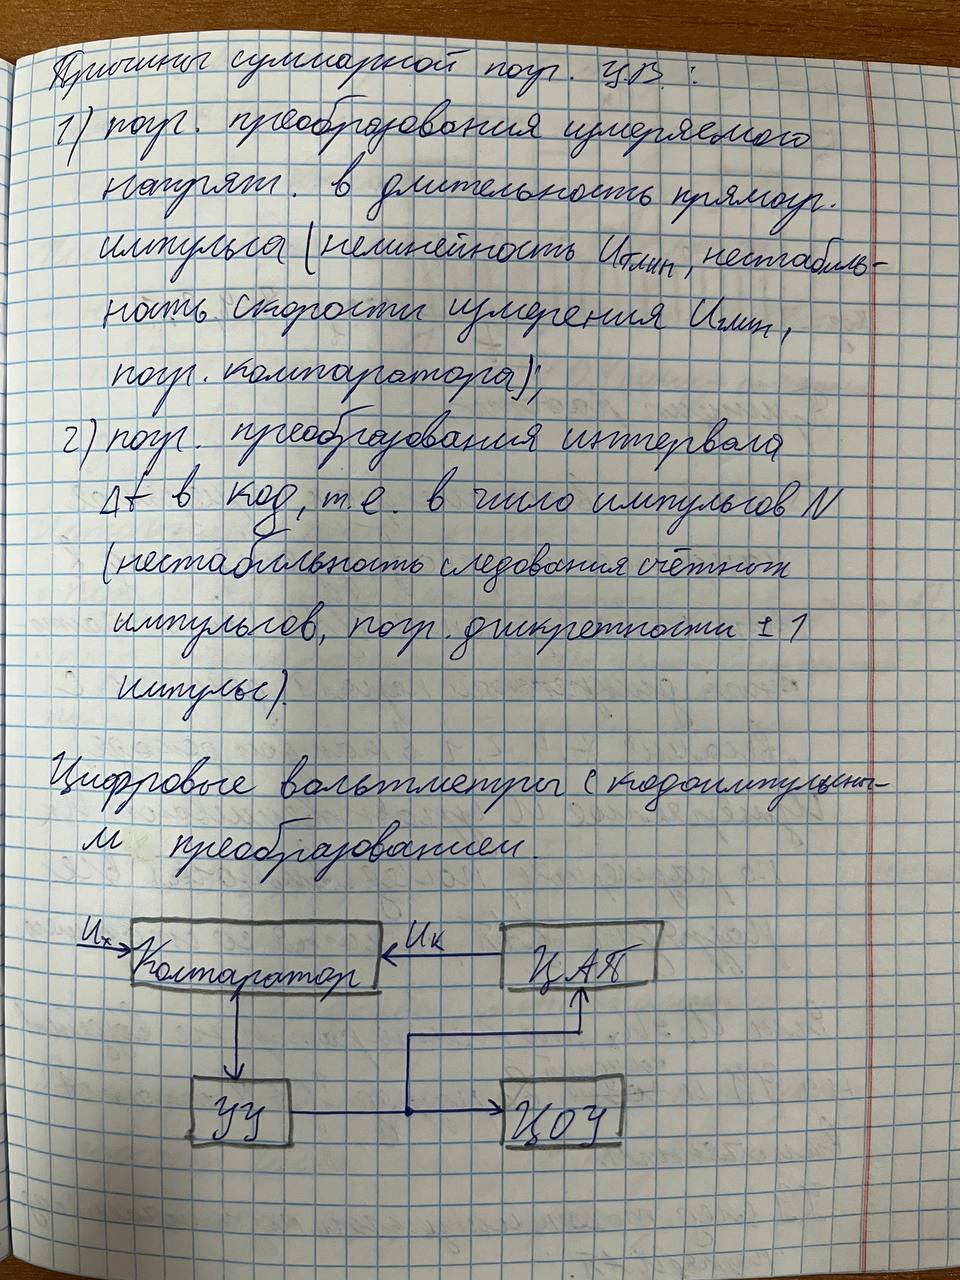 Причины суммарной погр. ЦВ:
1) погр. преобразования измеряемого
напряж. в длительность прямоуг.
импульса (нелинейность Uглин, нестабиль-
ность скорости измерения Uглин,
погр. компаратора);
2) погр. преобразования интервала
Δt в код, т.е. в число импульсов N
(нестабильность следования счётных
импульсов, погр. дискретности ± 1
импульс).
Цифровые вольтметры с кодоимпульсны-
м преобразованием.
Uх
Компаратор
Uк
ЦАП
УУ
ЦОУ